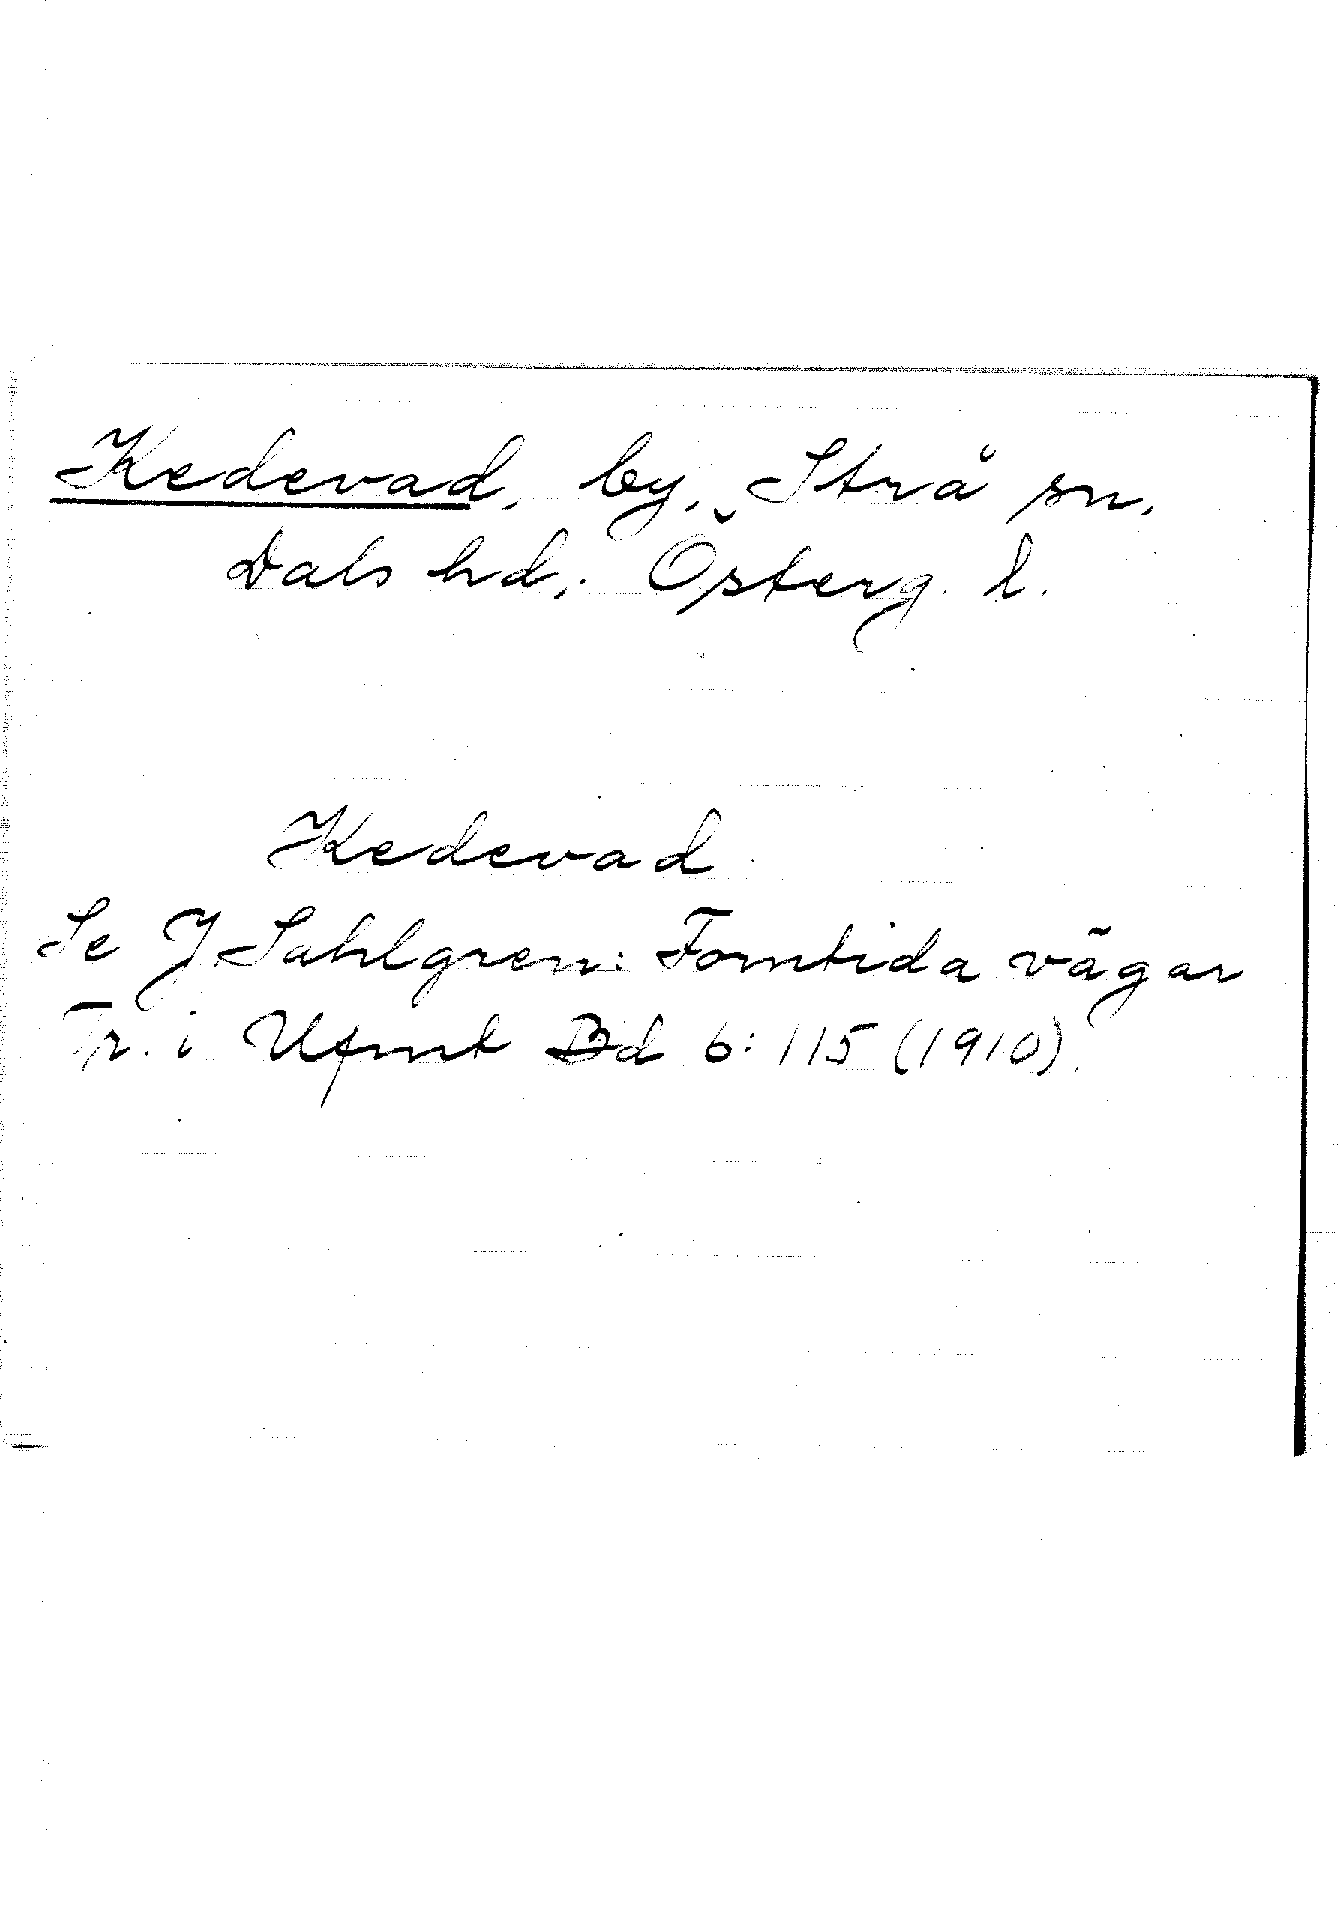 Kedevad, by, Strå sn,
Dals hd, Österg. l.
Kedevad
Se J Sahlgren: Forntida vägar
Tr. i Ufmt Bd 6:115 (1910)